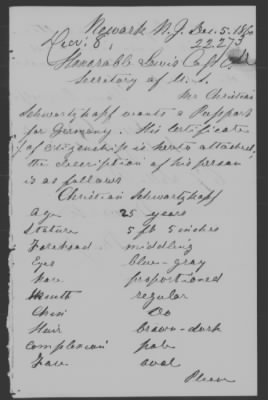 Newark N. J. Dec. 5. 1860
Decr. 8, 22.275
Honorable Lewis Cass
Secretary of U. S.
Mr Christian
Schwartzkopf wants a Passport
for Germany. His Certificate
of citizenship is hereto attached,
the description of his person
is as follows
Christian Schwartzkopf
Age 25 years
Stature 5 ft 5 inches
Forehead middling
Eyes blue-gray
Nose proportioned
Mouth regular
Chin Do
Hair brown-dark
complexion pale
Face oval
Please